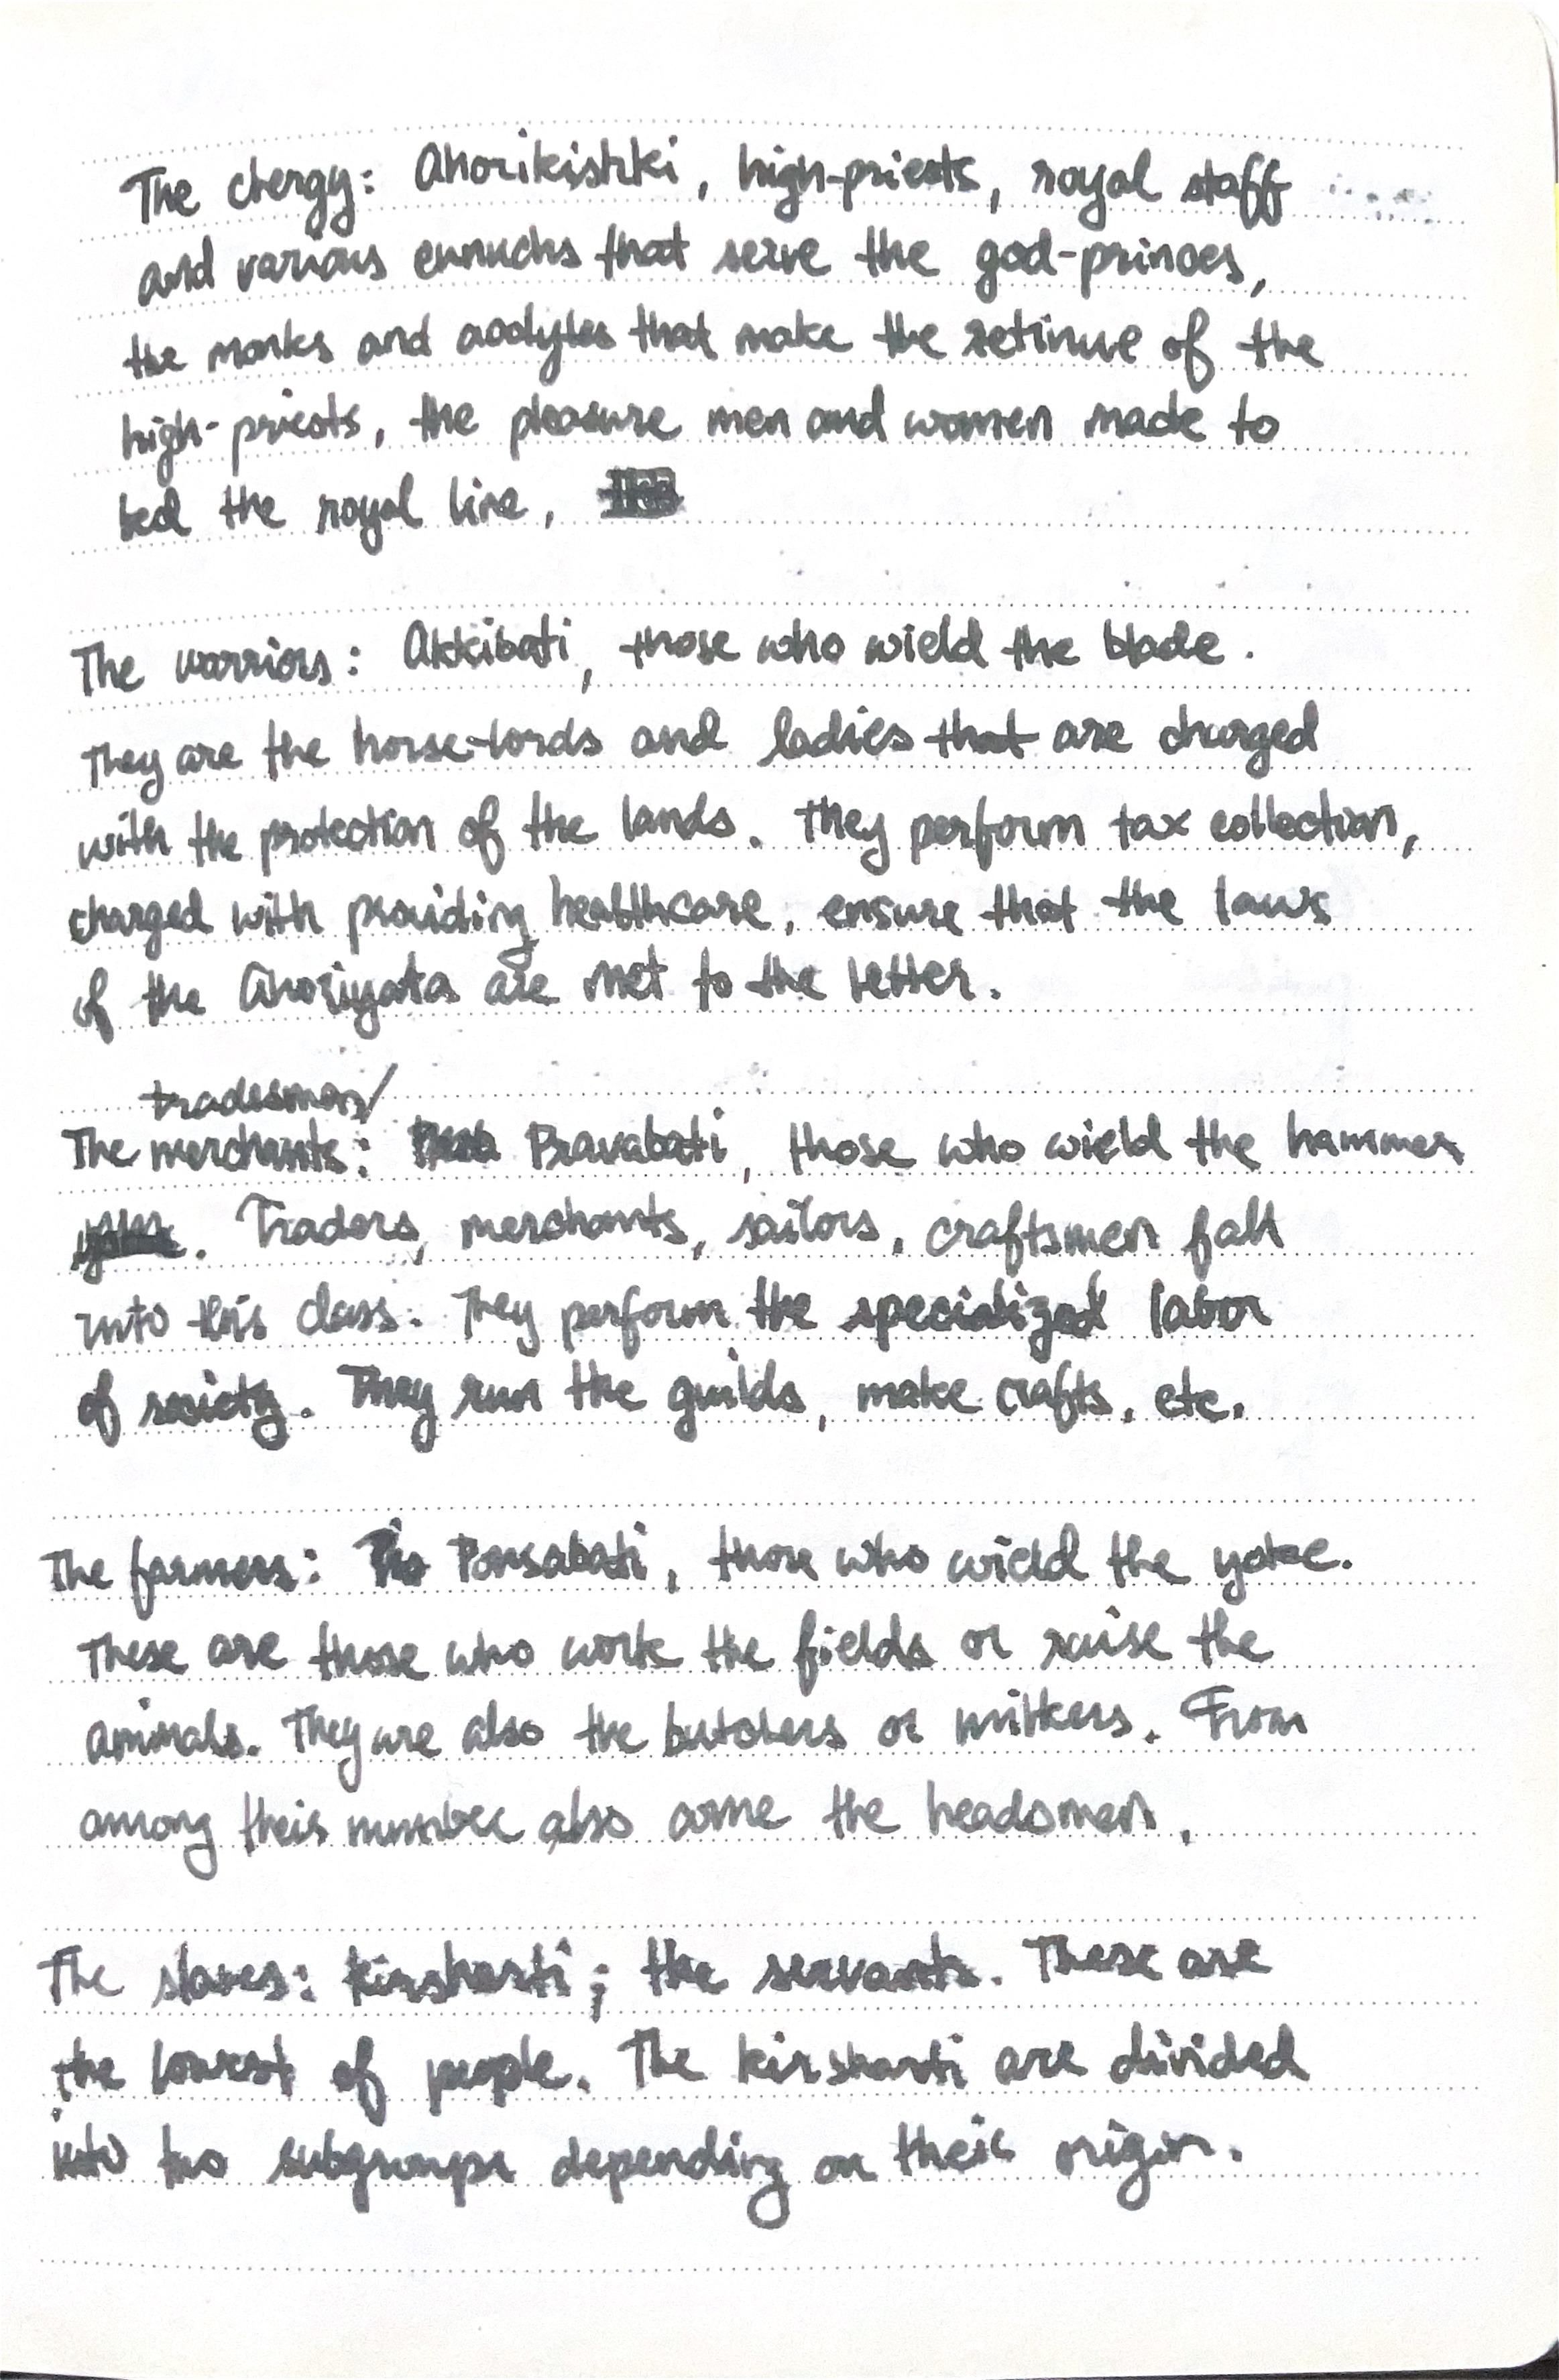 The clergy: Ahorikishki, high-priests, royal staff
and various eunuchs that serve the god-princes,
the monks and acolytes that make the retinue of the
high-priests, the pleasure men and women made to
bed the royal line,
The warriors: Akkibati, those who wield the blade.
They are the horse-lords and ladies that are charged
with the protection of the lands. They perform tax collection,
charged with providing healthcare, ensure that the laws
of the Ahoriyata are met to the letter.
tradesmen/
The merchants: Pravabati, those who wield the hammer
. Traders, merchants, sailors, craftsmen fall
into this class. They perform the specialized labor
of society. They run the guilds, make crafts, etc.
The farmers: Ponsabati, those who wield the yoke.
These are those who work the fields or raise the
animals. They are also the butchers or milkers. From
among their number also come the headsmen.
The slaves: kirsharti; the servants. These are
the lowest of people. The kirsharti are divided
into two subgroups depending on their origin.